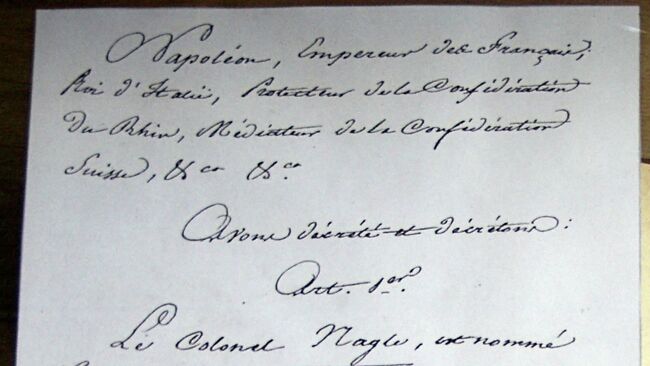 Napoléon, Empereur des Français,
Roi d'Italie, Protecteur de la Confédération
du Rhin, Médiateur de la Confédération
Suisse, &ca &ca
Avons décrété et décrétons :
Art. 1er.
Le Colonel Nagle, est nommé